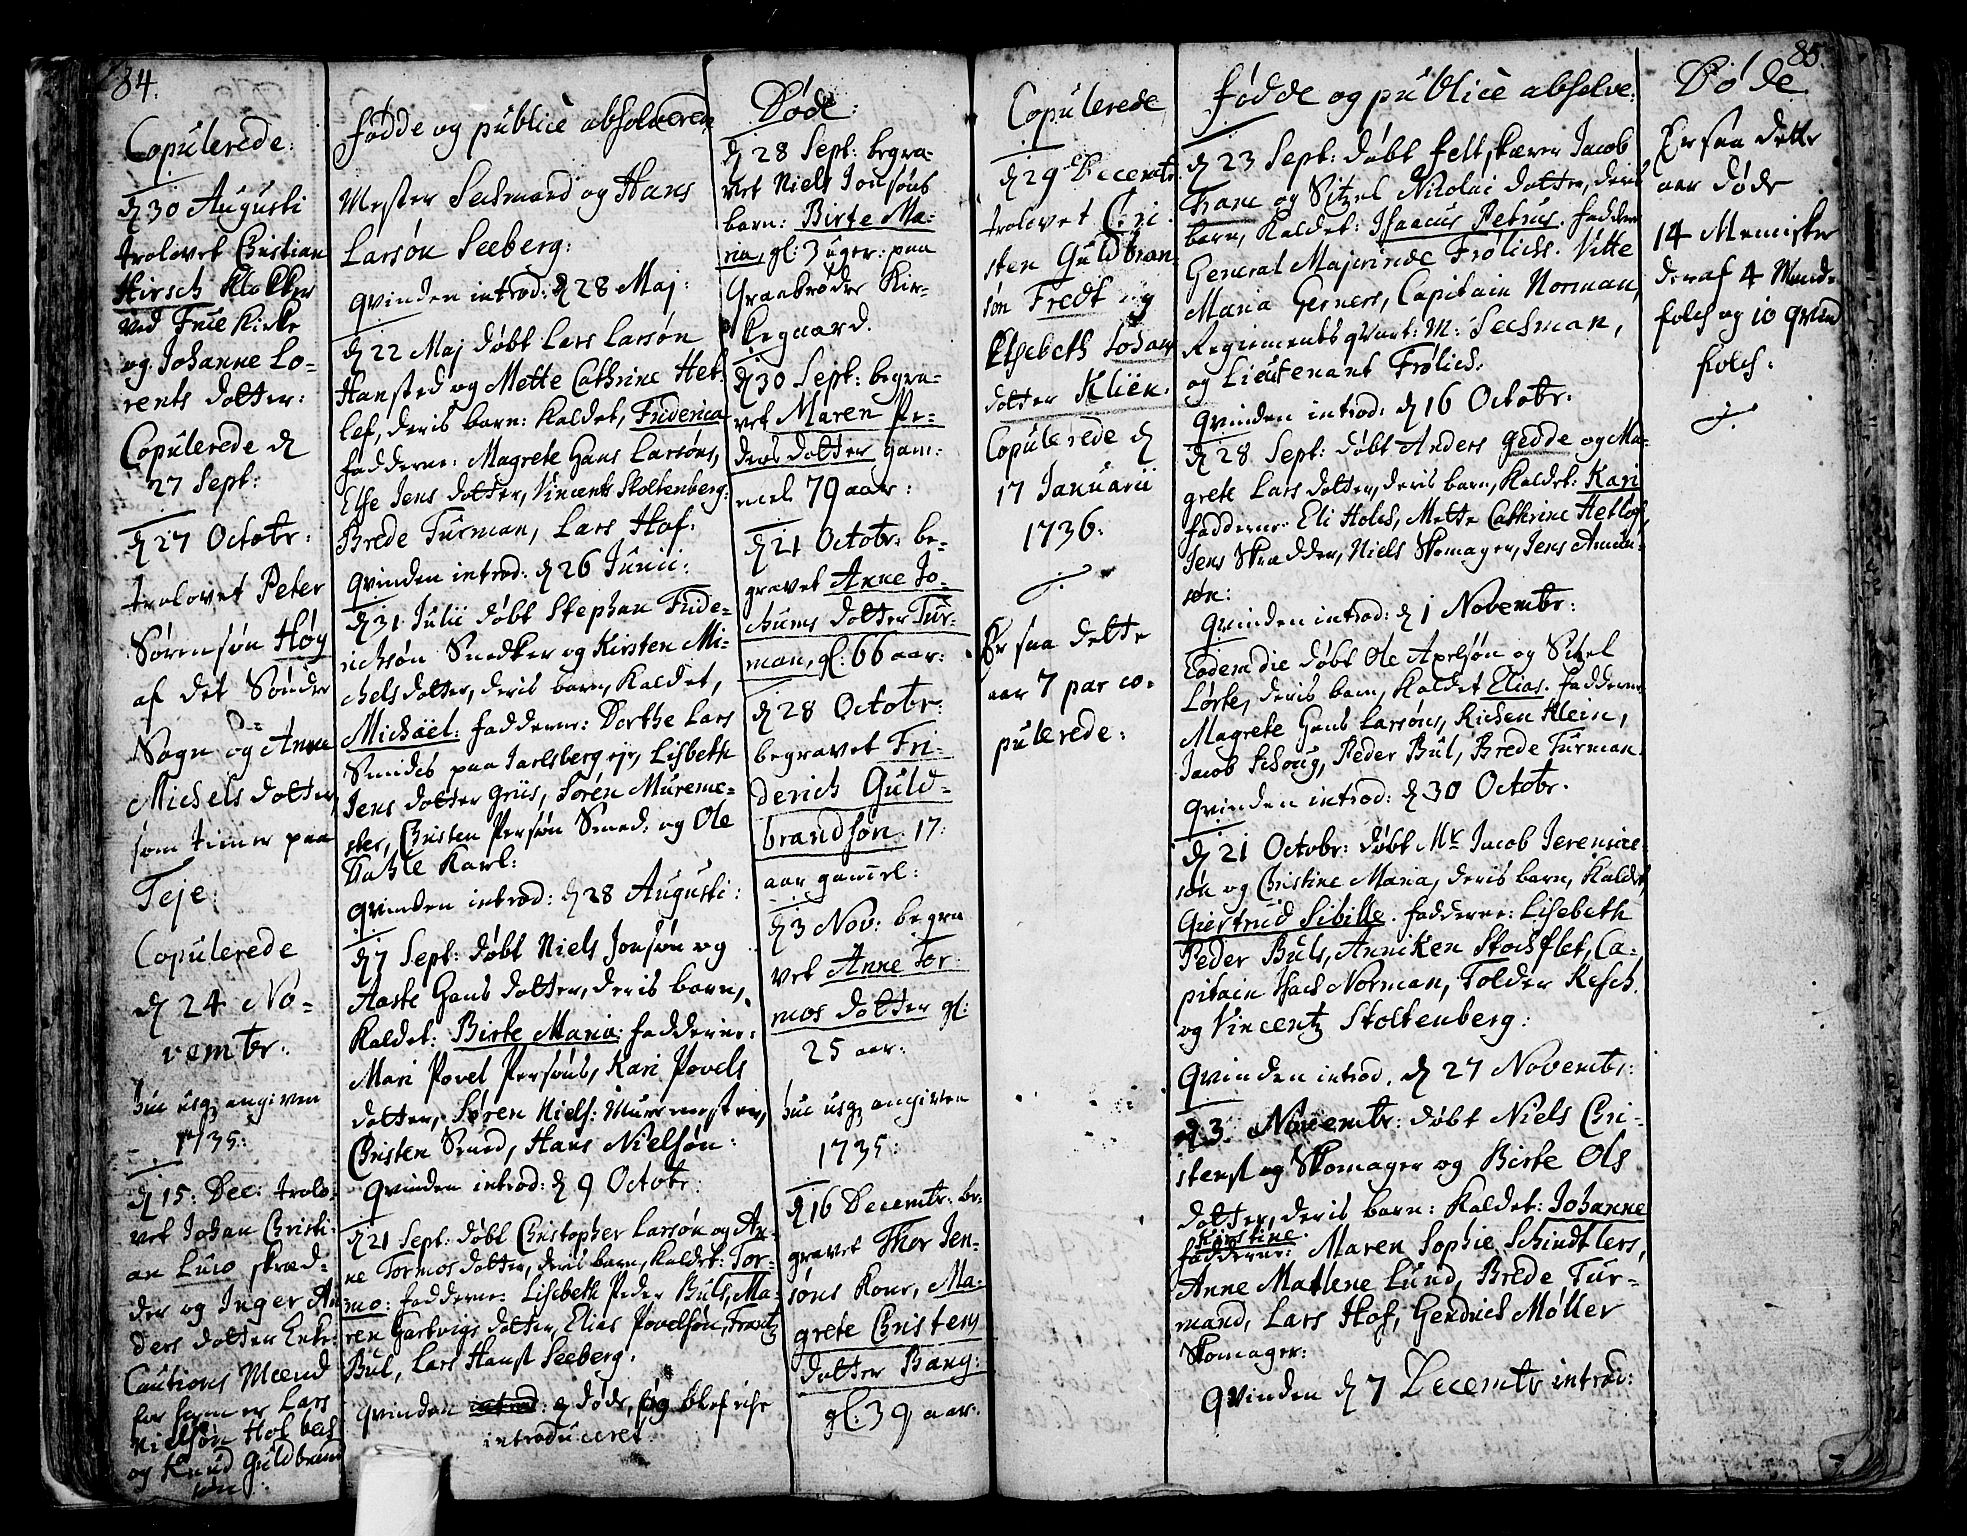 84.
Copulerede:
d 30 Augusti
trolovet Christian
Hirsch Klokker
ved Frue Kirke
og Johanne Lo-
rents dotter:
Copulerede d
27 Sept:
d 27 Octobr:
trolovet Peter
Sørensøn Høy
af det Sønder
Sogn og Anne
Michels dotter
som tiener paa
Teje:
Copulerede
d 24 No-
vembr:
huc usq; angiven
1735:
d 15: Dec: trolo-
vet Johan Christi-
an Lució skræd-
der og Inger An-
ders dotter Enke:
Cautions Mænd
for ham er Lars
Nielsøn Hof
og Knud Guldbrand
søn:
fødde og publicè absolverede
Mester Seehmand og Hans
Larsøn Seeberg:
qvinden introd: d 28 Maj:
d 22 Maj døbt Lars Larsøn
Hansted og Mette Cathrine Het-
lef, deris barn: kaldet, Friderica
fadderne: Magrete Hans Larsøns,
Else Jens dotter, Vincents Stoltenberg:
Brede Turman, Lars Hof:
qvinden introd: d 26 Junii:
d 31 Julii døbt Stephan Fride-
richsøn Snedker og Kirsten Mi-
chels dotter, deris barn, kaldet,
Michäel: fadderne: Dorthe Lars
Smids paa Jarlsberg eje, Lisbeth
Jens dotter Griis, Søren Mureme-
ster, Christen Persøn Smed, og Ole
Dahle Karl:
qvinden introd: d 28 Augusti:
d 7 Sept: døbt Niels Jonsøn og
Aaste Hans dotter, deris barn,
kaldet: Birte Maria: fadderne:
Mari Povel Persøns, Kari Povels
dotter, Søren Niels: Muurmester,
Christen Smed, Hans Nielsøn:
qvinden introd: d 9 Octobr:
d 21 Sept: døbt Christopher Larsøn og An-
ne Tormos dotter, deris barn, kaldet: Tor-
mo: fadderne: Lisebeth Peder Buls, Ma-
ren Hartvigs dotter, Elias Povelsøn, Frantz
Bul, Lars Hanss Seeberg:
qvinden døde, og blef iche
introduceret.
Døde:
d 28 Sept: begra-
vet Niels Jonsøns
barn: Birte Ma-
ria, gl: 3 uger: paa
Graabrødre Kir-
kegaard.
d 30 Sept: begra-
vet Maren Pe-
ders dotter gam-
mel 79 aar:
d 21 Octobr: be-
gravet Anne Jo-
chums dotter Tur-
man, gl: 66 aar:
d 28 Octobr:
begravet Fri-
derich Guld-
brandsøn 17:
aar gammel:
d 3 Nov: begra
vet Anne Tor-
mos dotter gl:
25 aar:
huc usq; angiven
1735:
d 16 Decembr: be-
gravet Thor Jen-
søns Kone, Ma-
grete Christens
dotter Bang:
gl: 39 aar:
85.
Copulerede
d 29 Decembr.
trolovet Chri-
sten Guldbran-
søn Fredt og
Elsebeth Johan
dotter Kliën.
Copulerede d
17 Januarii
1736:
Er saa dette
aar 7 par co-
pulerede:
fødde og publice absolve:
d 23 Sept: døbt feltskærer Jacob
Trane og Sitzel Nicolai dotter, deris
barn, kaldet: Isaacus Petrus. faddere
General Majorinde Frølich. Vitte
Maria Gerners, Capitain Norman,
Regiments qvart: M: Seehman,
og Lieutenant Frølich.
qvinden introd: d 16 Octobr:
d 28 Sept: døbt Anders Gedde og Ma-
grete Lars dotter, deris barn, kaldet: Kari
fadderne: Eli Holch, Mette Cathrine Hetlef,
Jens Skrædder, Niels Skomager, Jens Amun-
søn:
qvinden introd: d 1 Novembr:
Eodem die døbt Ole Apelsøn og Sitzel
Lørke, deris barn, kaldet Elias. fadderne
Magrete Hans Larsøns, Kichen Klein,
Jacob Schoug, Peder Bul, Brede Turman.
qvinden introd: d 30 Octobr.
d 21 Octobr: døbt Mr Jacob Jeremiæ-
søn og Christine Maria, deris barn, kaldet
Giertrud Sibille. fadderne: Lisebeth
Peder Buls, Anniken Stochflet, Ca-
pitain Isach Norman, Tolder Resch
og Vincentz Stoltenberg:
qvinden introd. d 27 Novembr:
d 3 Novembr: døbt Niels Chri-
stensl og Skomager og Birte Ols
dotter, deris barn: kaldet: Johanne
Kirstine.
fadderne: Maren Sophie Schindtlers,
Anne Matlene Lund, Brede Tur-
mand, Lars Hof, Hendrich Møller
Skomager:
qvinden d 7 Decembr introd:
Døde
Er saa dette
aar døde
14 Mennisker
deraf 4 Mand-
folch og 10 qvind
folch: